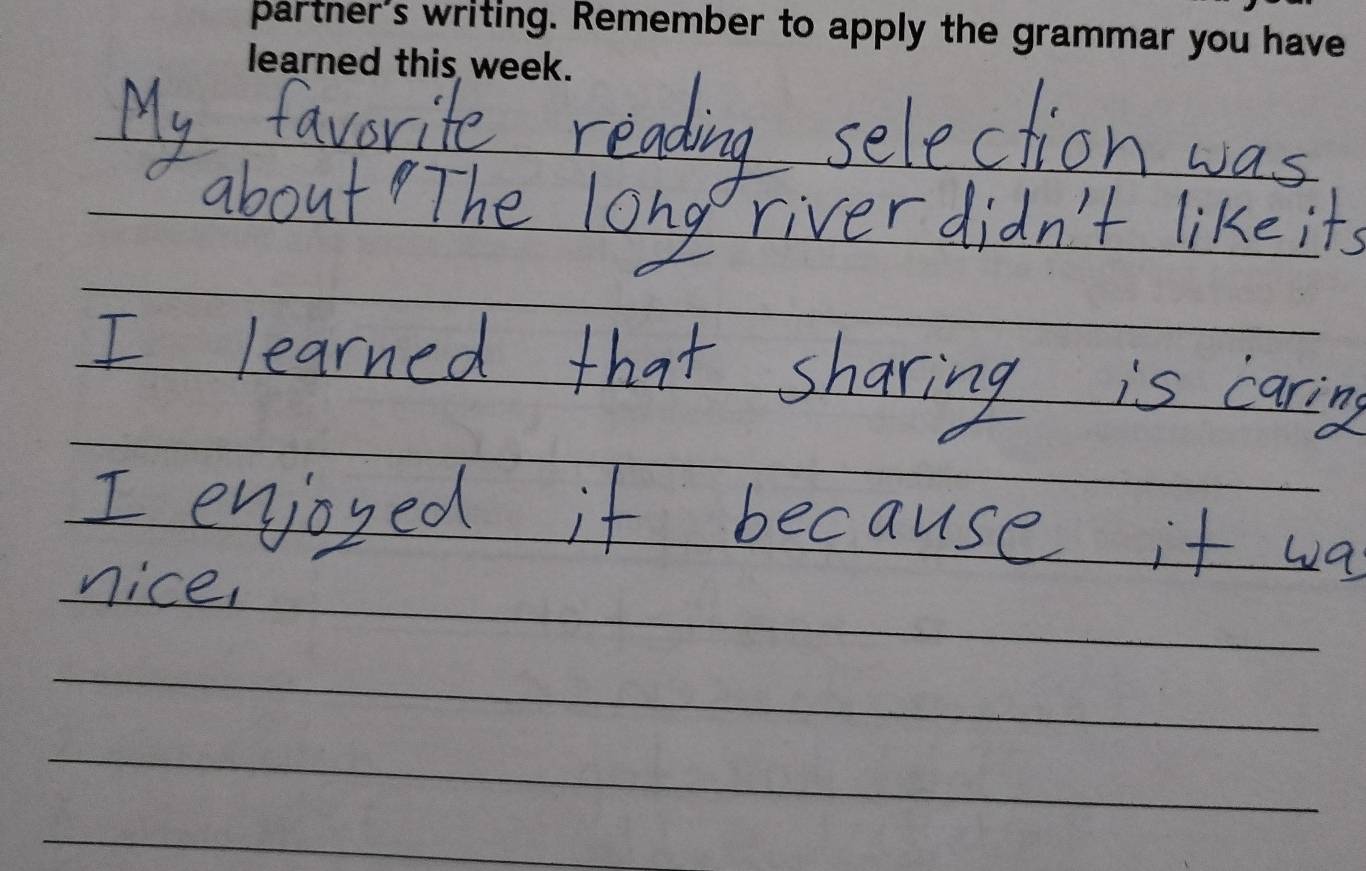 partner's writing. Remember to apply the grammar you have
learned this week.
My favorite reading selection was
about "The long river didn't like its
I learned that sharing is caring
I enjoyed it because it was
nice.